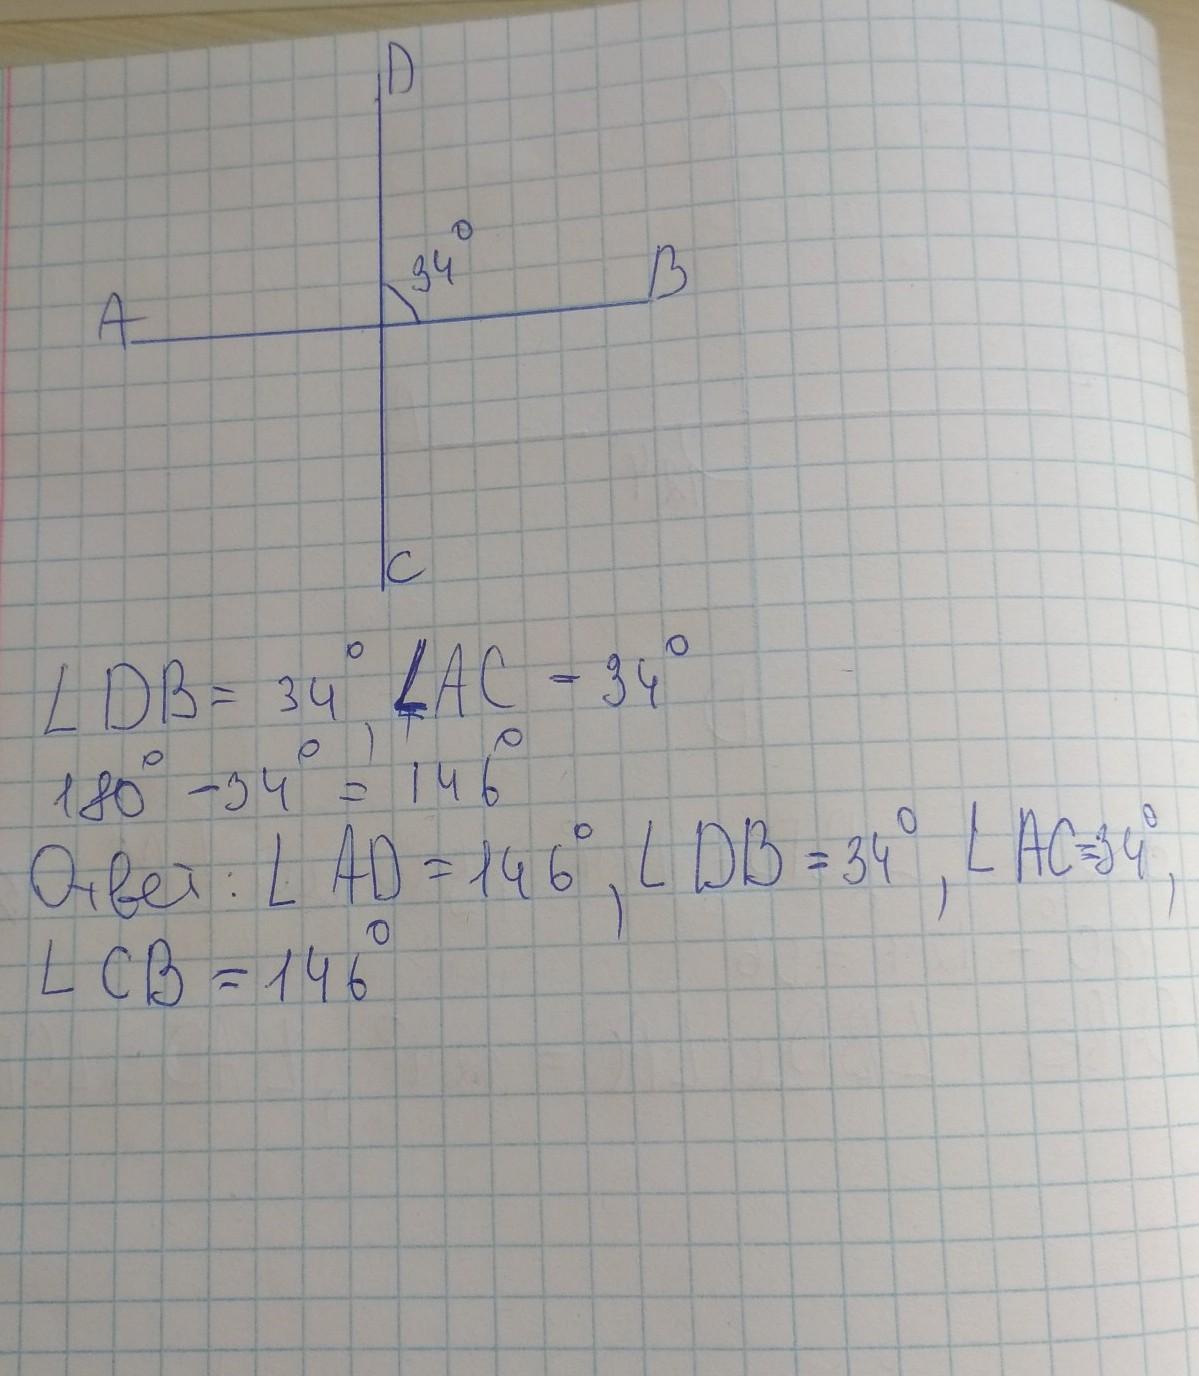 D
34°
B
A
C
∠DB = 34°, ∠AC - 34°
180° - 34° = 146°
Ответ: ∠ AD = 146°, ∠ DB = 34°, ∠ AC = 34°,
∠ CB = 146°